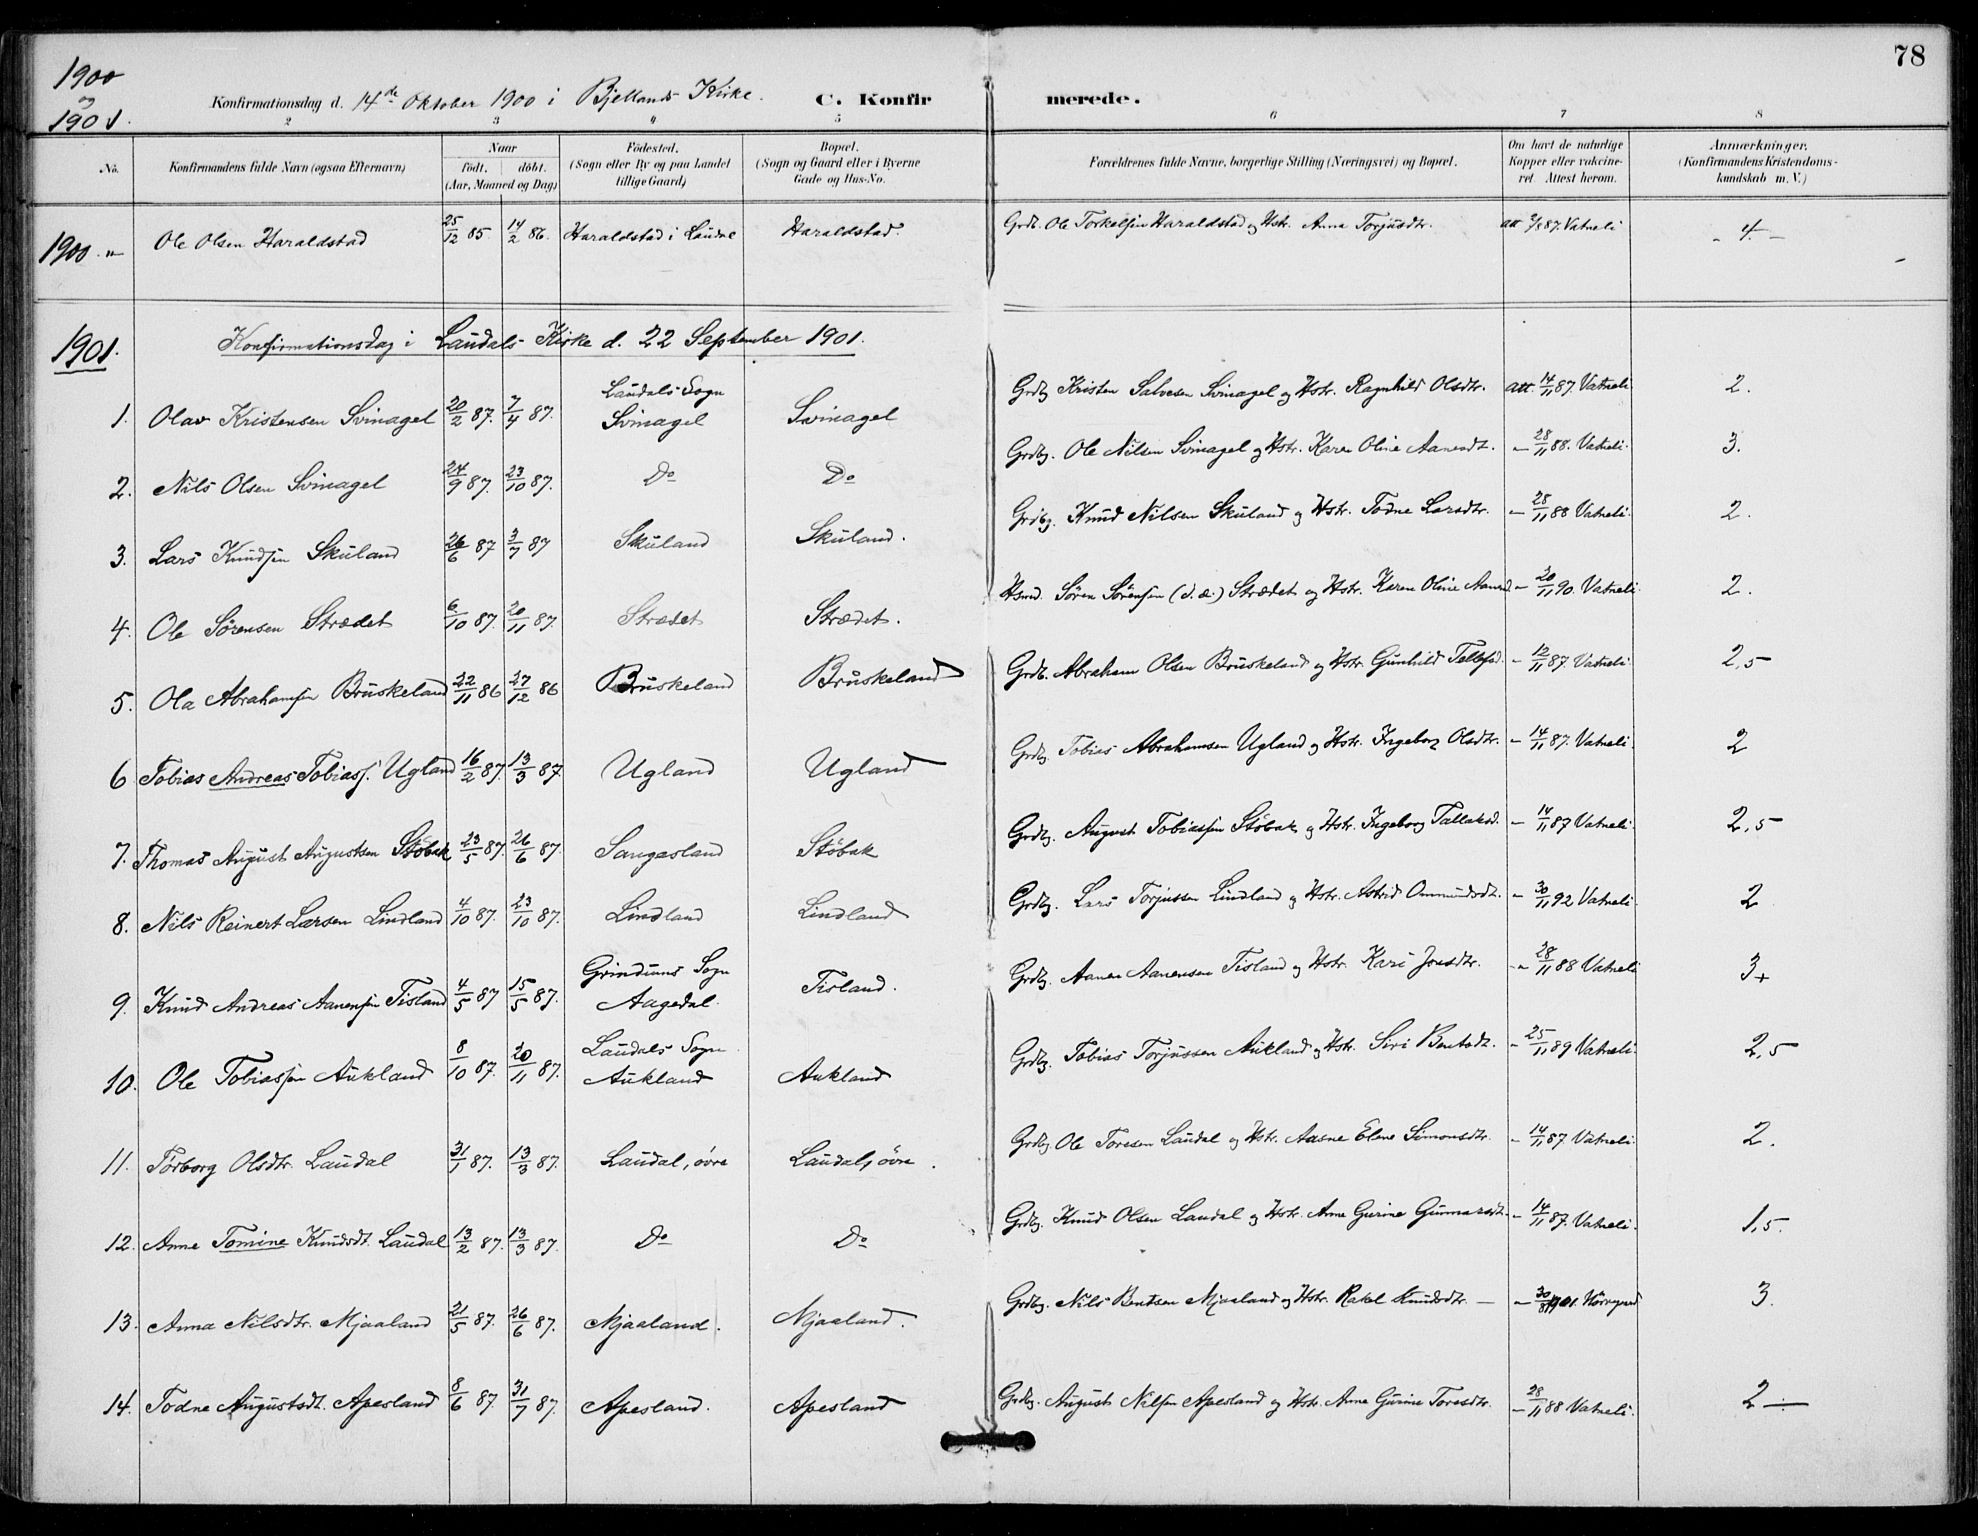 78
1900
og
1901.
Konfirmationsdag d. 14de Oktober 1900 i Bjellands Kirke. C. Konfirmerede.
2 3 4 5 6 7 8
No. Konfirmandens fulde Navn (ogsaa Efternavn) Naar födt. döbt. (Aar, Maaned og Dag) Födested. (Sogn eller By og paa Landet tillige Gaard) Bopæl. (Sogn og Gaard eller i Byerne Gade og Hus-No. Forældrenes fulde Navne, borgerlige Stilling (Næringsvei) og Bopæl. Om havt de naturlige Kopper eller vakcineret. Attest herom. Anmærkninger. (Konfirmandens Kristendomskundskab m. V.)
1900 „ Ole Olsen Haraldstad 25/12 85 14/2 86. Haraldstad i Laudal Haraldstad. Grdb. Ole Torkelsen Haraldstad og Hstr. Anna Torjusdtr. att 87. Vatneli - 4. -
1901. Konfirmationsdag i Laudals Kirke d. 22 September 1901.
1. Olav Kristensen Svinagel 20/2 87. 7/4 87. Laudals Sogn Svinagel Svinagel Grdbg Kristen Salvesen Svinagel og Hstr. Ragnhild Olsdtr. att. 14/11 87. Vatneli 2.
2. Nils Olsen Svinagel 24/9 87. 23/10 87. Do Do Grdbg. Ole Nilsen Svinagel og Hstr. Karen Oline Aanendt. - 28/11 88. Vatneli. 3.
3. Lars Knudsen Skuland 26/6 87 3/7 87 Skuland Skuland. Grdbg. Knud Nilsen Skuland og Hstr. Todne Larsdtr. - 28/11 88 Vatneli. 2.
4. Ole Sörensen Strædet 6/10 87. 20/11 87. Strædet Strædet. Hsmd. Sören Sörensen (d. æ.) Strædet og Hstr. Karen Oline Aanend - 20/11 90. Vatneli. 2.
5. Ola Abrahamsen Bruskeland 22/11 86 27/12 86 Bruskeland Bruskeland Grdb. Abraham Olsen Bruskeland og Hstr. Gunhild Tellefsd. - 12/11 87. Vatneli. 2,5
6 Tobias Andreas Tobiass. Ugland 16/2 87. 13/3 87. Ugland Ugland Grdbg. Tobias Abrahamsen Ugland og Hstr. Ingeborg Olsdtr. - 14/11 87. Vatneli. 2
7. Thomas August Augustsen Stöbak 23/5 87. 26/6 87. Sangesland Stöbak Grdbg. August Tobiassen Stöbak og Hstr. Ingeborg Tallaksd. - 14/11 87 Vatneli. 2,5
8. Nils Reinert Larsen Lindland 4/10 87. 23/10 87. Lindland Lindland Grdbg. Lars Torjussen Lindland og Hstr. Astrid Ommundsdt. - 30/11 92 Vatneli. 2
9. Knud Andreas Aanensen Tisland 4/5 87 15/5 87. Grindums Sogn Aagedal. Tisland. Grdbg. Aanen Aanensen Tisland og Hstr. Kari Jonsdtr. - 28/11 88 Vatneli 3+
10. Ole Tobiassen Aukland 8/10 87. 20/11 87. Laudals Sogn Aukland Aukland Grdbg. Tobias Torjussen Aukland og Hstr. Siri Bentsdt. - 25/11 89 Vatneli. 2,5
11. Torborg Olsdtr. Laudal 31/1 87. 13/3 87. Laudal, övre Laudal, övre. Grdbg. Ole Toresen Laudal og Hstr. Aasne Elene Simonsdtr. - 14/11 87. Vatneli. 2.
12. Anne Tomine Knudsdt. Laudal 13/2 87. 13/3 87. Do Do Grdbg. Knud Olsen Laudal og Hstr. Anne Gurine Gunnarsdt. - 14/11 87. Vatneli. 1,5.
13. Anna Nilsdtr. Mjaaland 21/5 87. 26/6 87. Mjaaland. Mjaaland. Grdbg. Nils Bentsen Mjaaland og Hstr. Rakel Knudsdtr. - - 30/8 1901. 3.
14. Todne Augustsdt. Apesland 8/6 87. 31/7 87. Apesland. Apesland Grdbg. August Nilsen Apesland og Hstr. Anne Gurine Toresdtr. - 28/11 88 Vatneli. 2 -